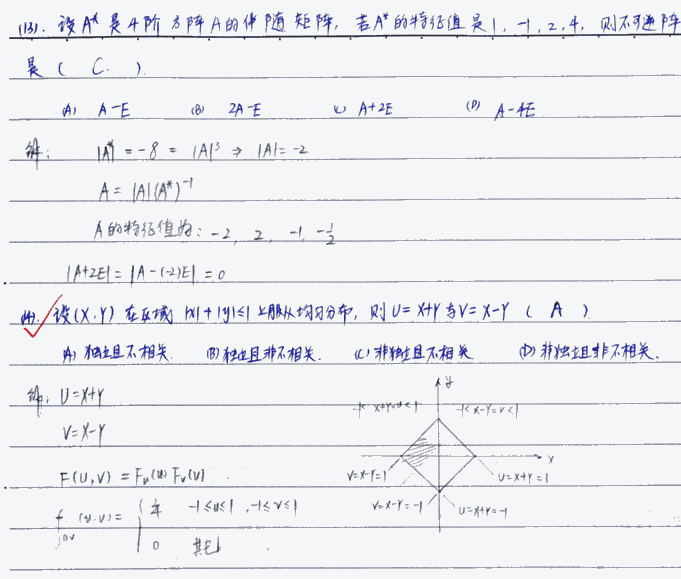 (13). 设 A* 是 4 阶方阵 A 的伴随矩阵, 若 A* 的特征值是 1, -1, 2, 4, 则不可逆阵
是 ( C. ).
(A) A-E (B) 2A-E (C) A+2E (D) A-4E
解: |A*| = -8 = |A|³ ⇒ |A| = -2
A = |A|(A*)⁻¹
A 的特征值为: -2, 2, -1, -1/2
|A+2E| = |A-(-2)E| = 0
(14). 设 (X, Y) 在区域 |x|+|y|≤1 上服从均匀分布, 则 U=X+Y 与 V=X-Y ( A )
(A) 独立且不相关. (B) 独立且非不相关. (C) 非独立且不相关 (D) 非独立且非不相关.
解: U=X+Y
V=X-Y
F(U,V) = F_U(u) F_V(v)
f (u,v) = { 1/4 -1≤u≤1, -1≤v≤1
0 其它
y
-1<X+Y=U<1 -1<X-Y=V<1
x
V=X-Y=1 U=X+Y=1
V=X-Y=-1 U=X+Y=-1